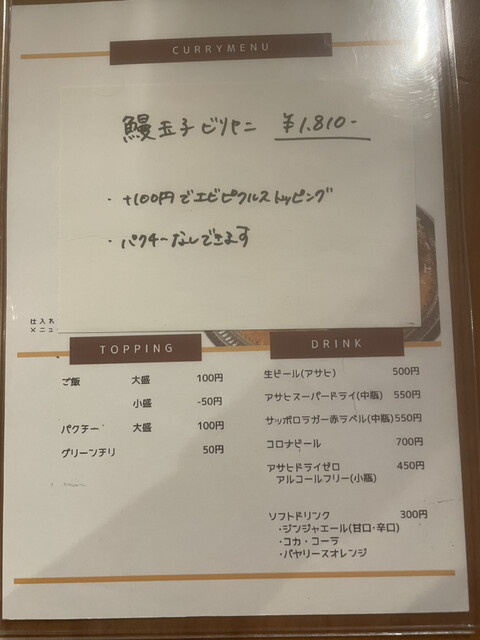 CURRYMENU
鰻玉子ビリヤニ ¥1.810-
・+100円でエビピクルストッピング
・パクチーなしできます
仕入れ
メニュ
TOPPING
ご飯 大盛 100円
小盛 -50円
パクチー 大盛 100円
グリーンチリ 50円
DRINK
生ビール(アサヒ) 500円
アサヒスーパードライ(中瓶) 550円
サッポロラガー赤ラベル(中瓶) 550円
コロナビール 700円
アサヒドライゼロ 450円
アルコールフリー(小瓶)
ソフトドリンク 300円
・ジンジャエール(甘口・辛口)
・コカ・コーラ
・バヤリースオレンジ